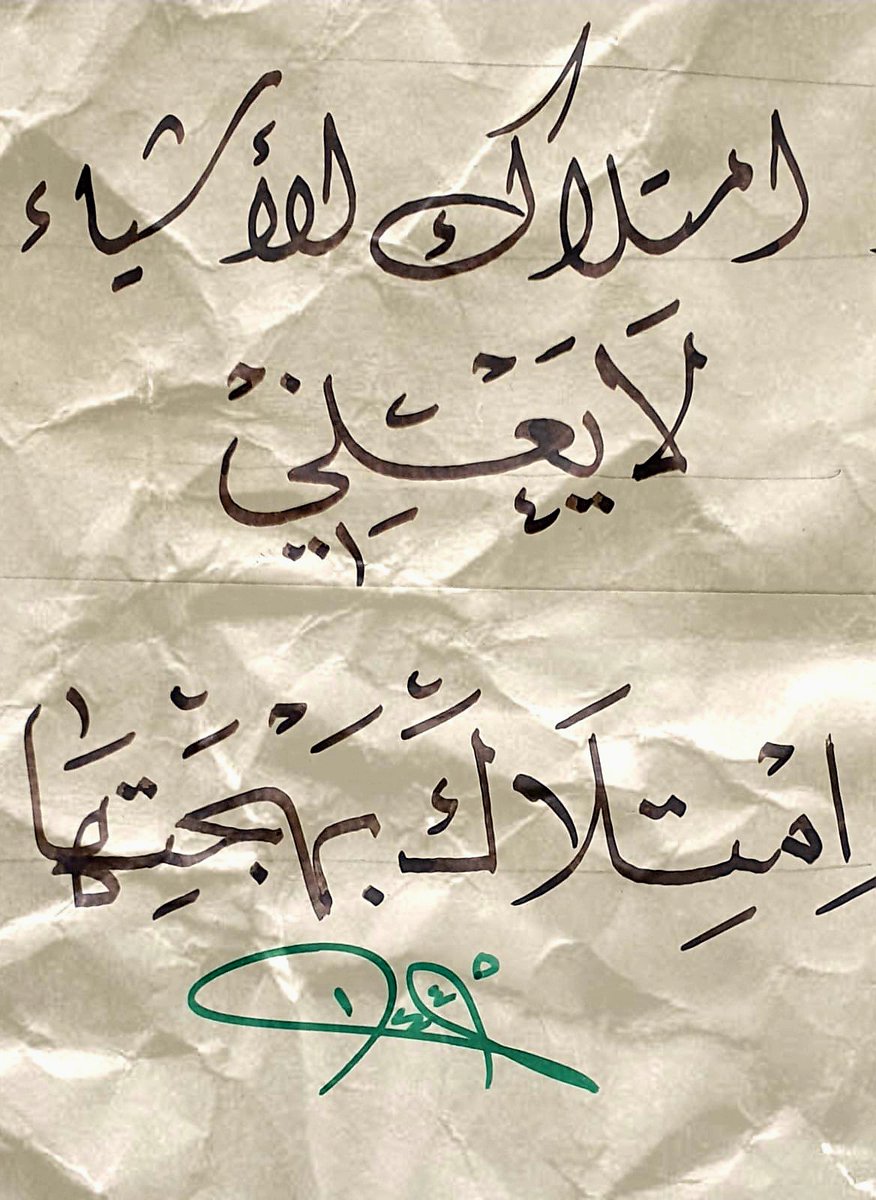 امتلاك الأشياء
لَا يَعْنِيْ
اِمْتِلَاكَ بَهْجَتِهَا